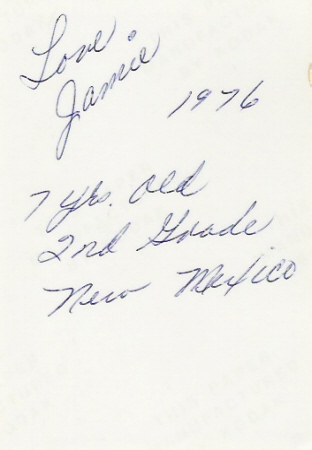 Love,
Jamie
1976
7 yrs. old
2nd Grade
New Mexico